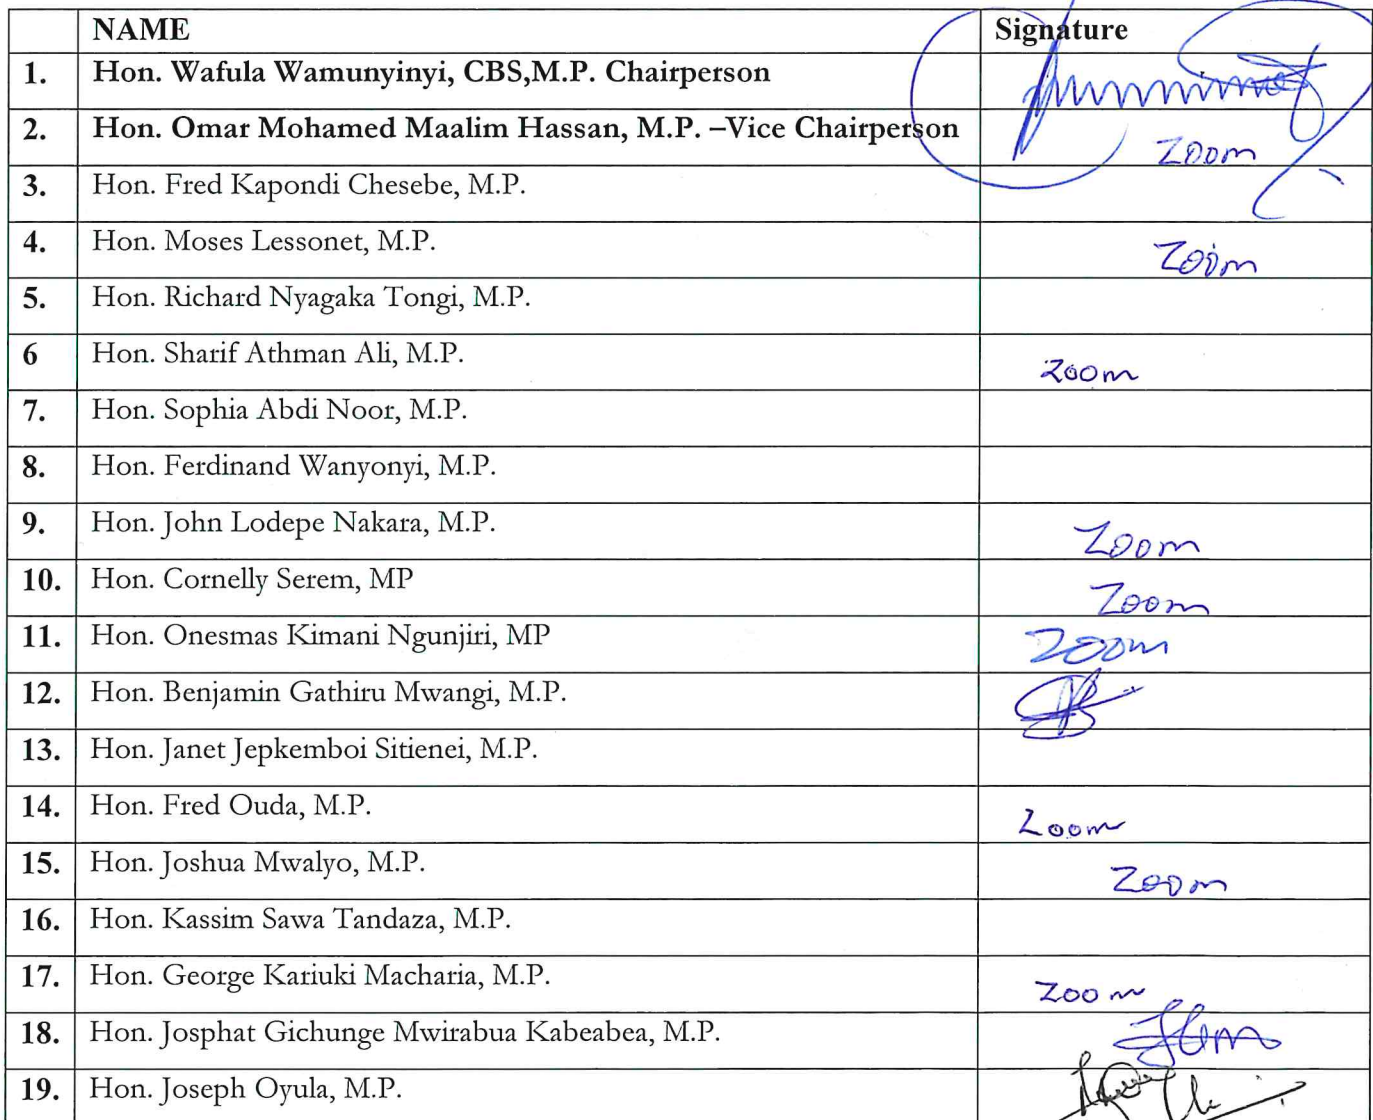 NAME Signature
1. Hon. Wafula Wamunyinyi, CBS,M.P. Chairperson
2. Hon. Omar Mohamed Maalim Hassan, M.P. –Vice Chairperson Zoom
3. Hon. Fred Kapondi Chesebe, M.P.
4. Hon. Moses Lessonet, M.P. Zoom
5. Hon. Richard Nyagaka Tongi, M.P.
6 Hon. Sharif Athman Ali, M.P. Zoom
7. Hon. Sophia Abdi Noor, M.P.
8. Hon. Ferdinand Wanyonyi, M.P.
9. Hon. John Lodepe Nakara, M.P. Zoom
10. Hon. Cornelly Serem, MP Zoom
11. Hon. Onesmas Kimani Ngunjiri, MP Zoom
12. Hon. Benjamin Gathiru Mwangi, M.P.
13. Hon. Janet Jepkemboi Sitienei, M.P.
14. Hon. Fred Ouda, M.P. Zoom
15. Hon. Joshua Mwalyo, M.P. Zoom
16. Hon. Kassim Sawa Tandaza, M.P.
17. Hon. George Kariuki Macharia, M.P. Zoom
18. Hon. Josphat Gichunge Mwirabua Kabeabea, M.P.
19. Hon. Joseph Oyula, M.P.